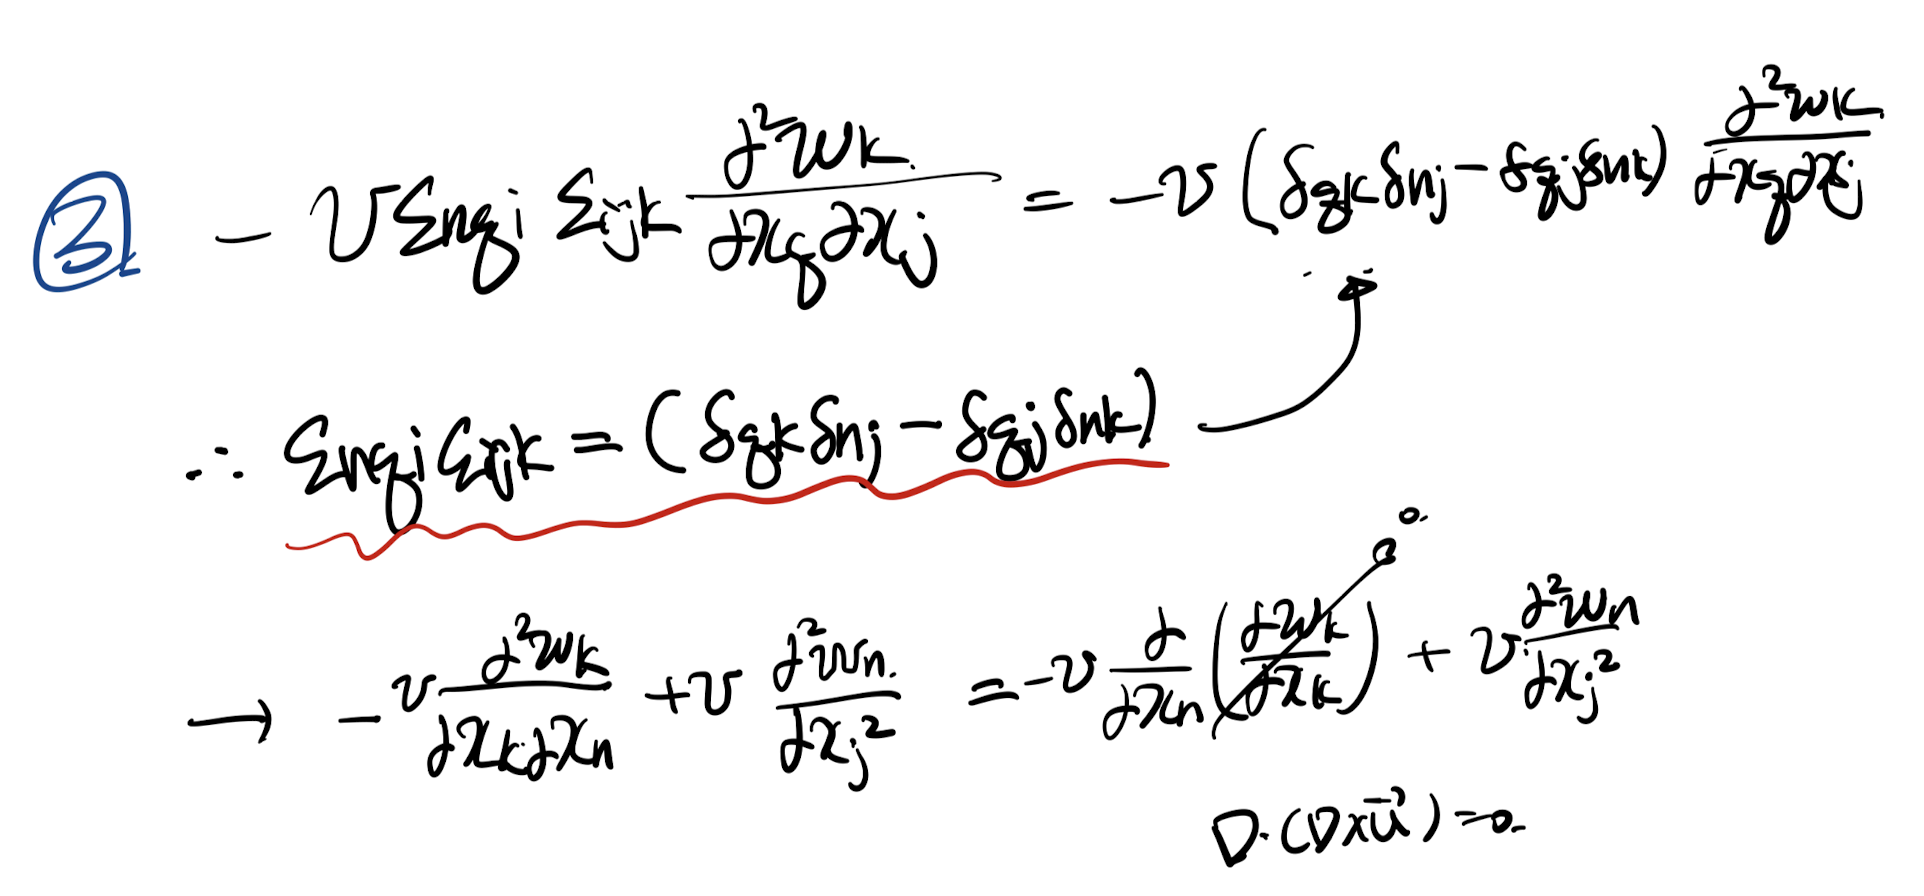 ③ -νε_{nqi} ε_{ijk} ∂²ω_k/∂x_q∂x_j = -ν(δ_{qk}δ_{nj} - δ_{qj}δ_{nk}) ∂²ω_k/∂x_q∂x_j
∴ ε_{nqi} ε_{ijk} = (δ_{qk}δ_{nj} - δ_{qj}δ_{nk})
→ -ν ∂²ω_k/∂x_k∂x_n + ν ∂²ω_n/∂x_j² = -ν ∂/∂x_n (∂ω_k/∂x_k) + ν ∂²ω_n/∂x_j²
0.
∇·(∇×u⃗) = 0.